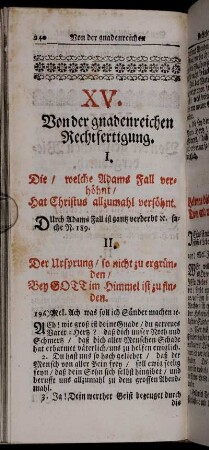 240 Von der gnadenreichen
XV.
Von der gnadenreichen
Rechtfertigung.
I.
Die / welche Adams Fall ver-
höhnt /
Hat Christus allzumahl versöhnt.
Durch Adams Fall ist gantz verderbt ꝛc. su-
che N. 189.
II.
Der Ursprung / so nicht zu ergrün-
den /
Bey GOTT im Himmel ist zu fin-
den.
196. Mel. Ach was soll ich Sünder machen ꝛc.
ACh! wie groß ist deine Gnade / du getreues
Vater-Hertz? daß dich unser Noth und
Schmertz / daß dich aller Menschen Schade
hat erbarmet väterlich / uns zu helfen ewiglich.
2. Du hast uns so hoch geliebet / daß der
Mensch von aller Pein frey / soll ewig seelig
seyn / daß dein Sohn sich selbst hingibet / und
beruffe uns allzumahl zu dem grossen Abend-
mahl.
3. Ja! Dein werther Geist bezeuget durch
die